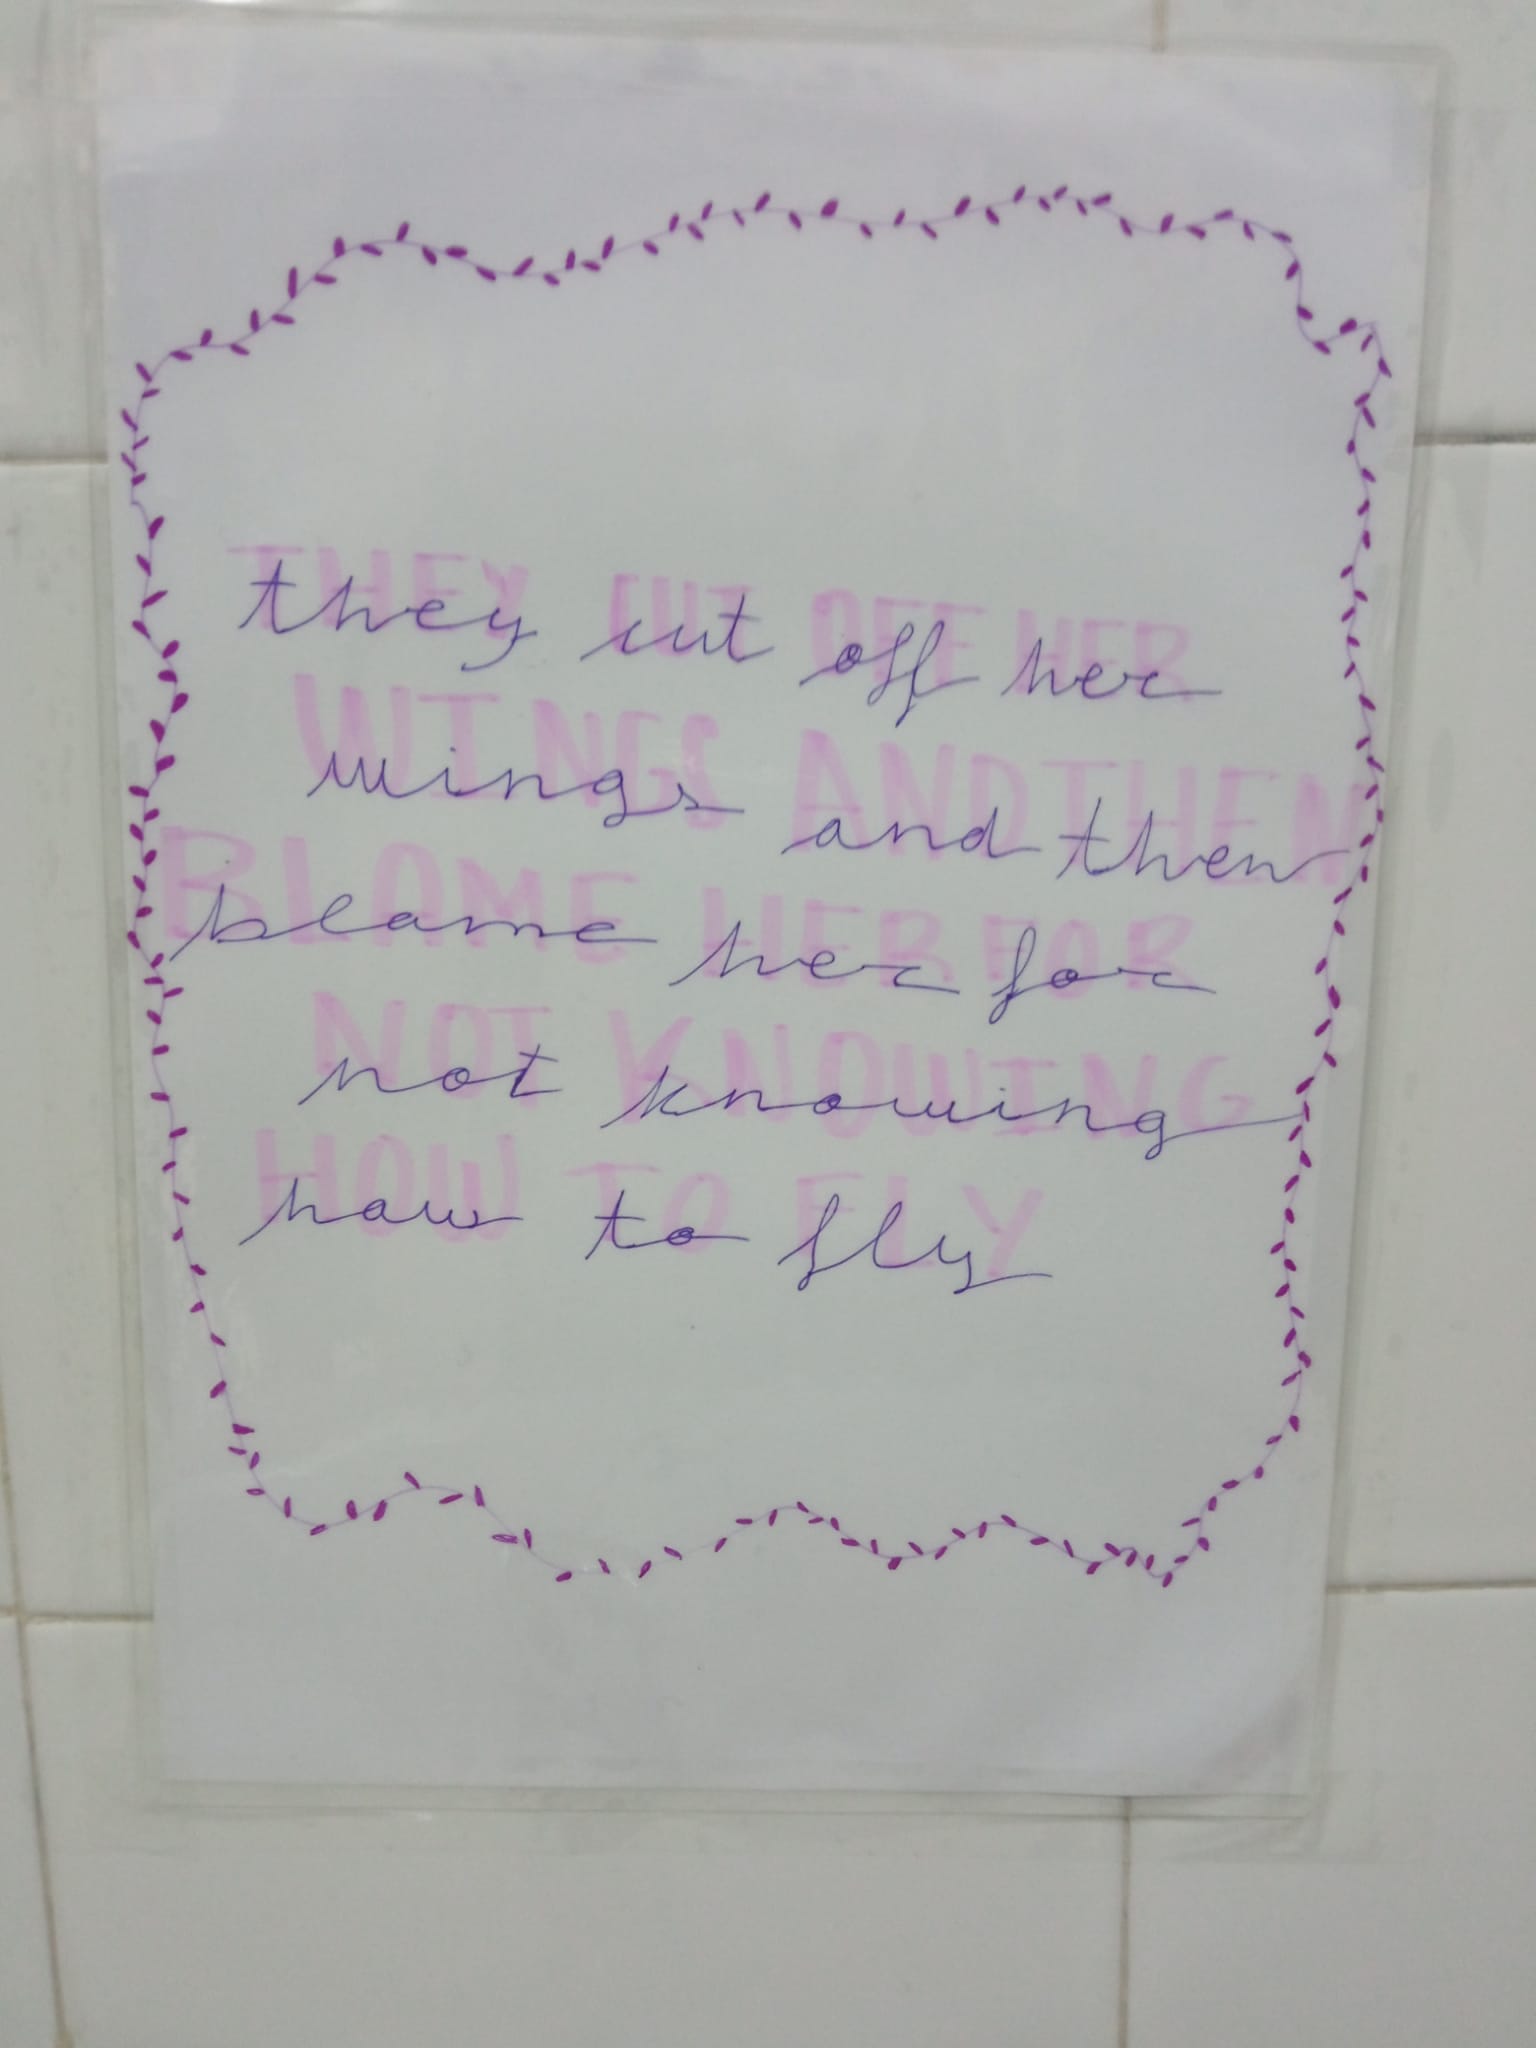 THEY CUT OFF HER
they cut off her
WINGS AND THEN
wings and then
BLAME HER FOR
blame her for
NOT KNOWING
not knowing
HOW TO FLY
how to fly